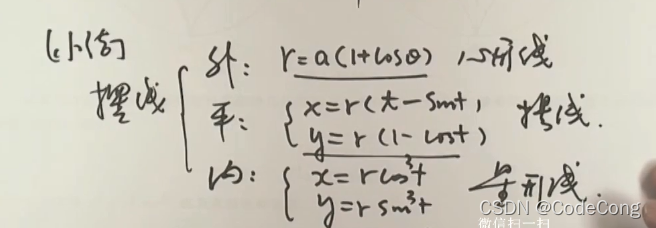 小结
摆线
外: r=a(1+cosθ) 心形线
平: { x=r(t-sint)
y=r(1-cost) 摆线.
内: { x=rcos³t
y=rsin³t 星形线.
CSDN @CodeCong
微信扫一扫